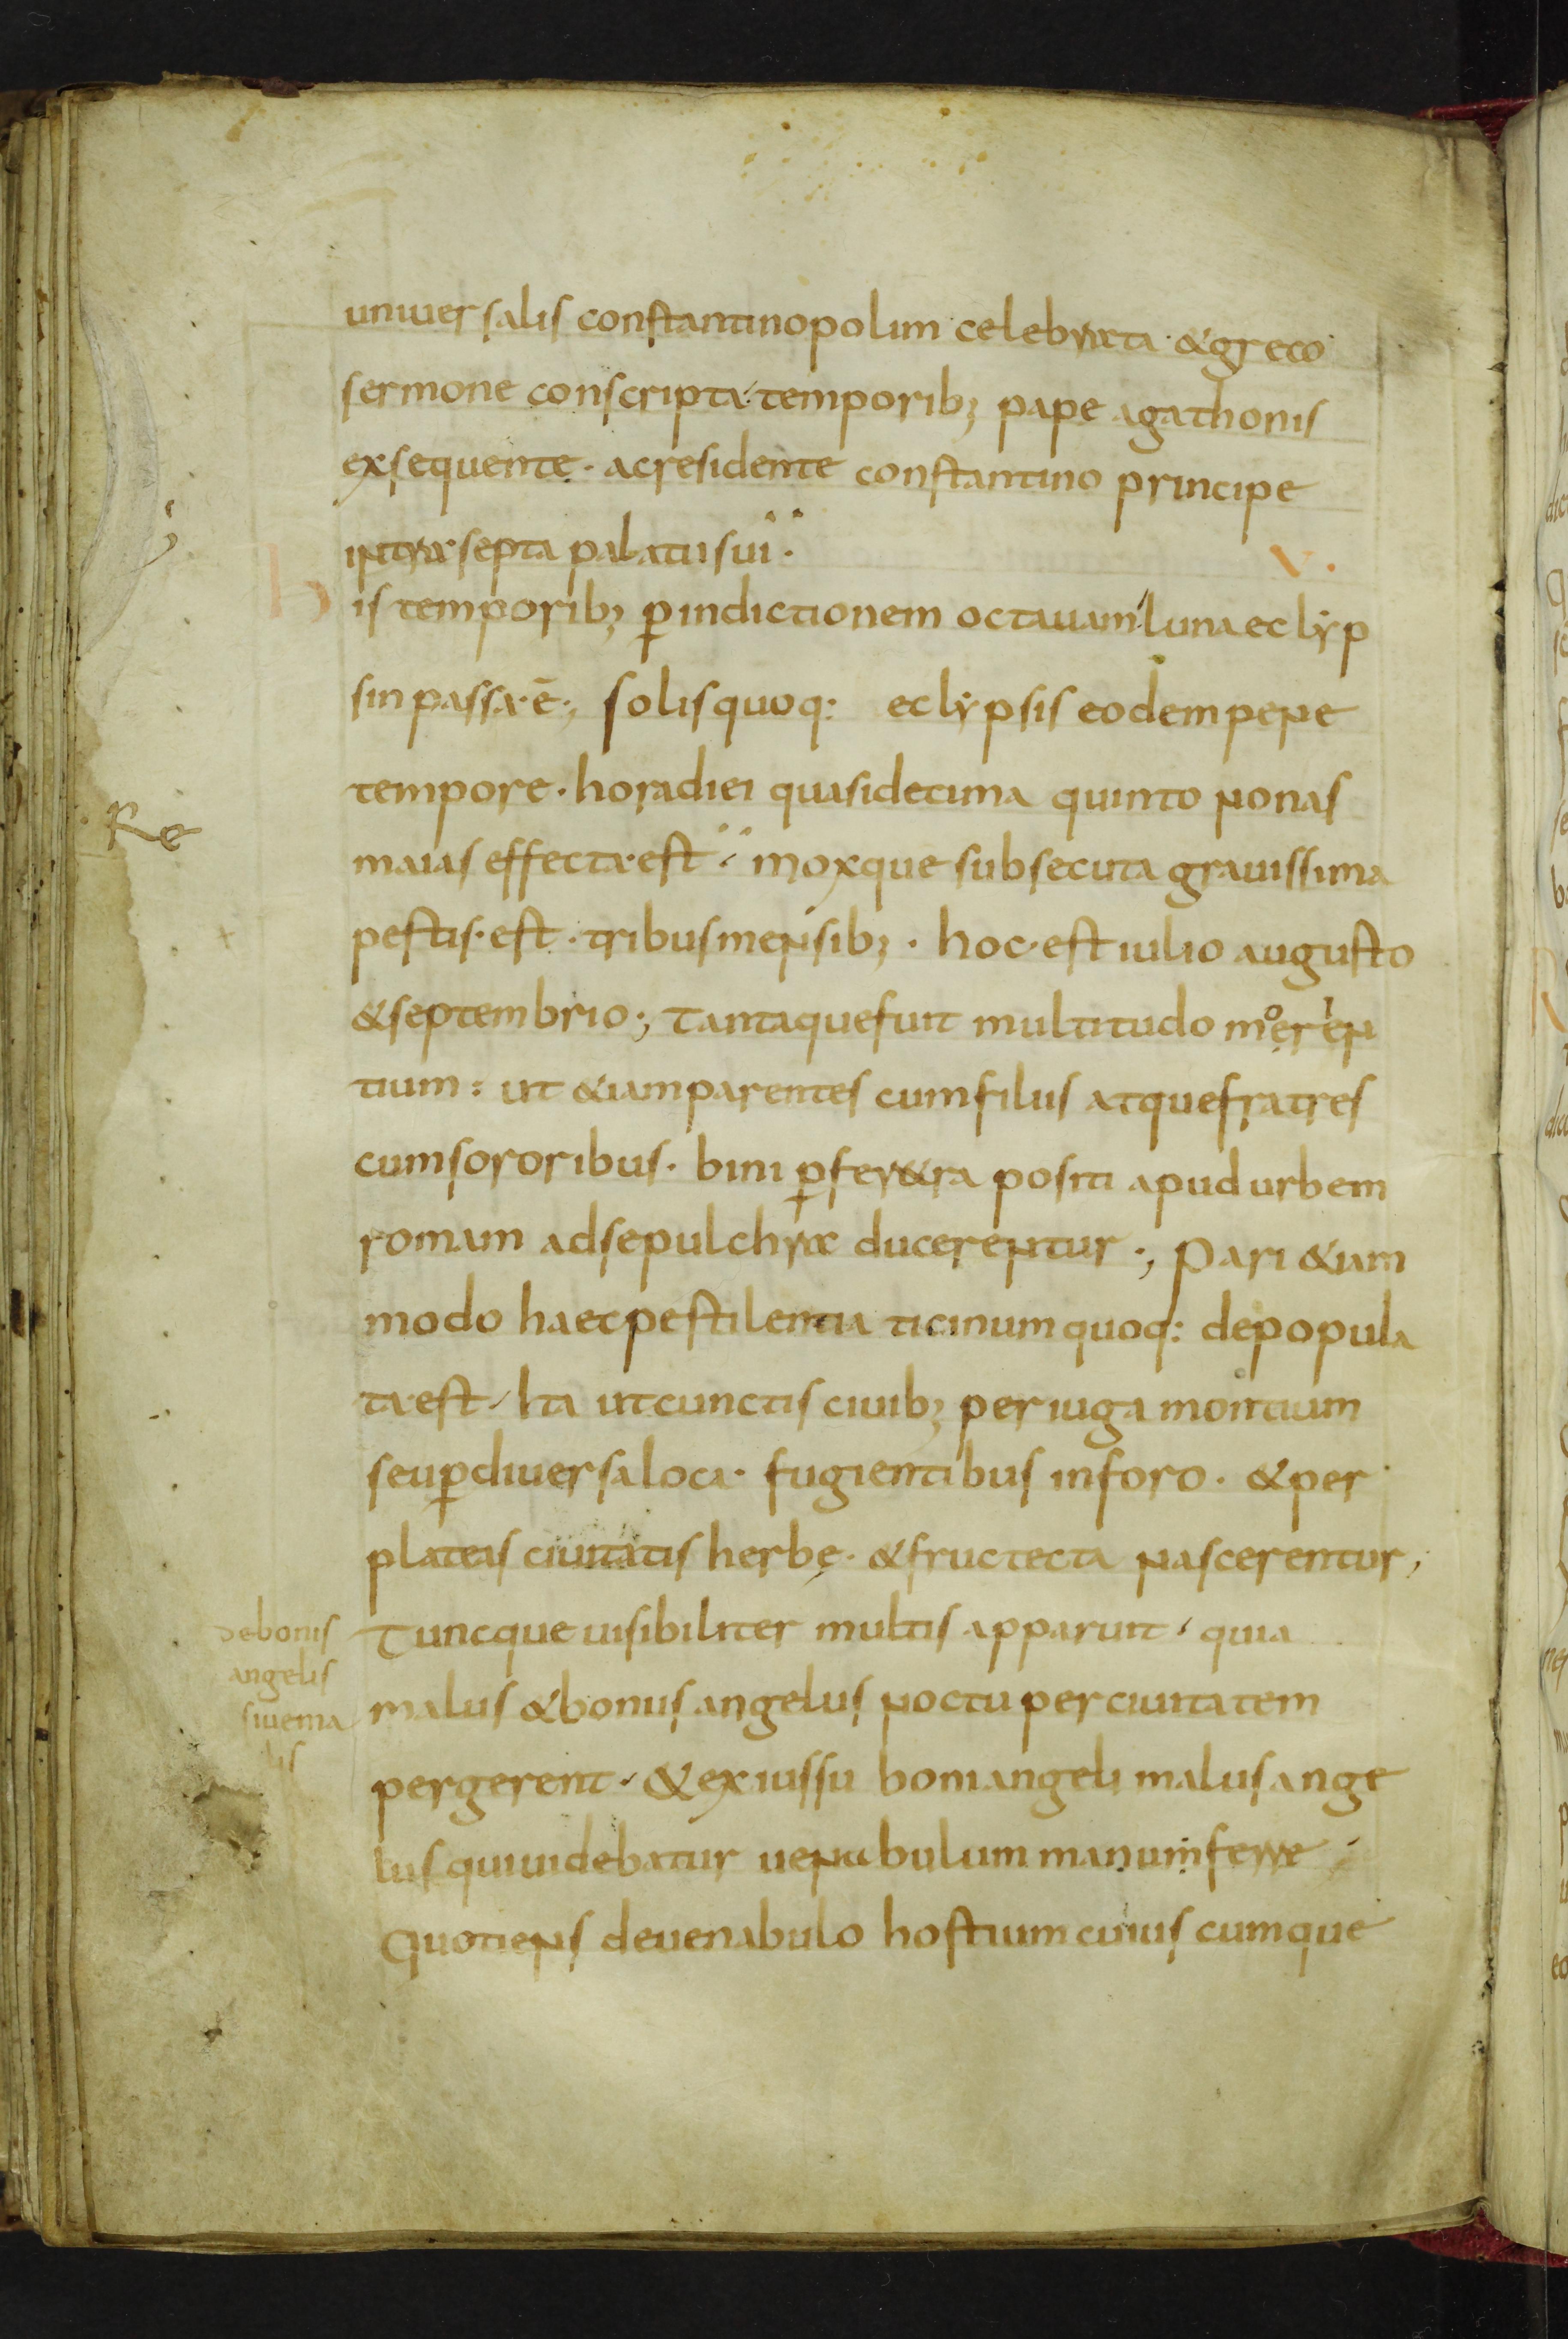 uniuersalis constantinopolim celebrata · & greco
sermone conscripta · temporib; pape agathonis
exsequente · ac residente constantino principe
intra septa palatii sui ·
V.
His temporib; p̱ indictionem octauam luna eclyp
sin passa · ē ; solis quoq: eclypsis eodem pene
tempore · hora diei quasi decima quinto nonas
Re
maias effecta · est · moxque subsecuta grauissima
pestis · est · tribus mensib; · hoc · est iulio augusto
& septembrio ; Tantaque fuit multitudo moerien
tium : ut &iam parentes cum filiis atque fratres
cum sororibus · bini p̱ feretra positi apud urbem
romam ad sepulchra ducerentur ; Pari &iam
modo haec pestilentia ticinum quoq: depopula
ta · est · Ita ut cunctis ciuib; per iuga montium
seu p̱ diuersa loca · fugientibus in foro · & per
plateas ciuitatis herbę · & fructecta nascerentur,
Tuncque uisibiliter multis apparuit · quia
malus & bonus angelus noctu per ciuitatem
pergerent · & ex iussu boni angeli malus ange
lus qui uidebatur uenabulum manum ferre
Quotiens de uenabulo hostium cuius cumque
de bonis
angelis
siue ma
lis